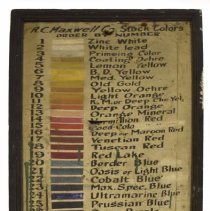 R.C. Maxwell Co Stock Colors
ORDER BY NUMBER
1 Zinc White
2 White Lead
3 Primeing Color
4 Coating Ochre
5 Lemon Yellow
6 B.D. Yellow
7 Med. Yellow
8 Old Yellow
9 Yellow Ochre
10 Light Orange
11
12 Deep Orange
13 Orange Mineral
14 Red
15 Good Cold
16 Deep or Maroon Red
17 Venetian Red
18 Tuscan Red
19 Red Lake
20 Border Blue
21 Oasis or Light Blue
22 Cobalt Blue
23 Max. Spec. Blue
24 Ultramarine Blue
25 Prussian Blue